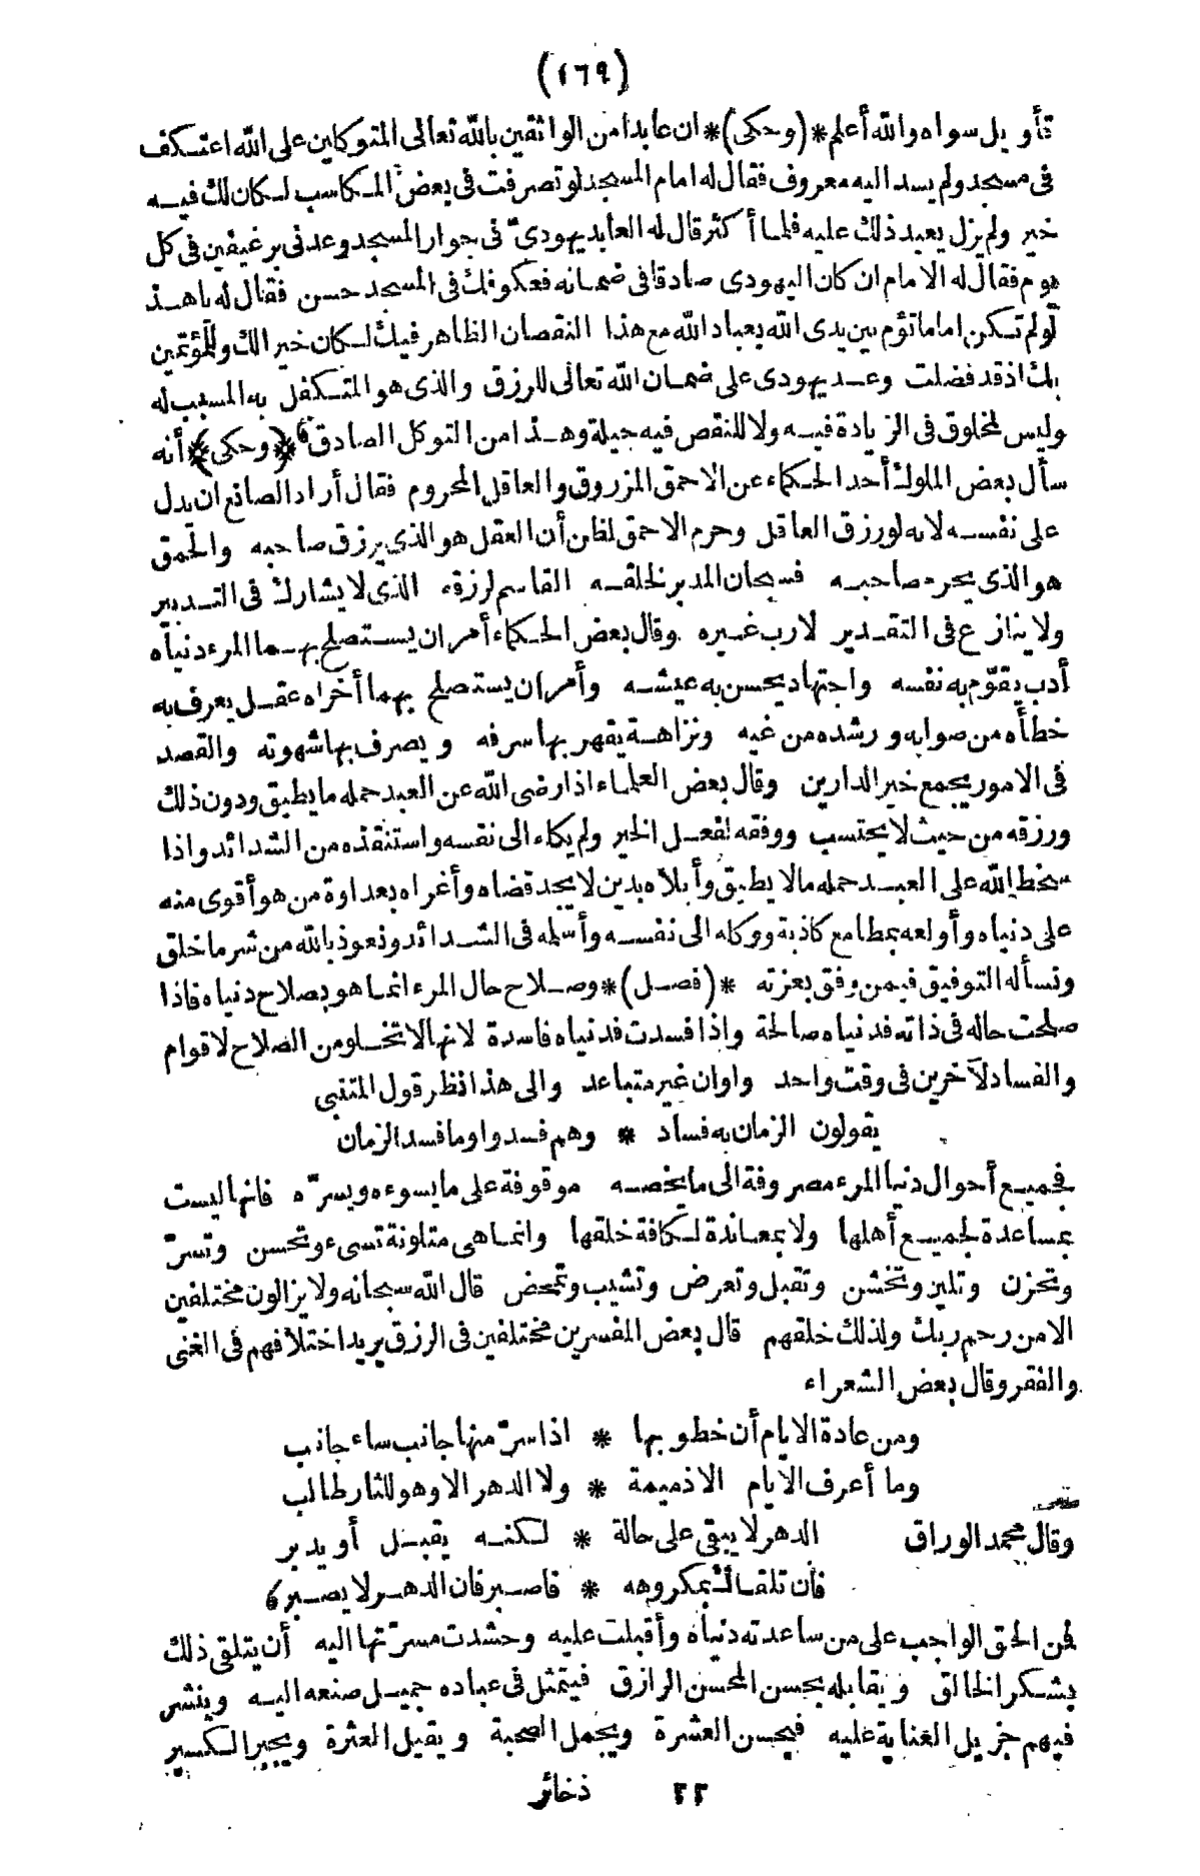 (١٦٩)
تأويل سواه والله أعلم *(وحكى)* ان عابدا من الواثقين بالله تعالى المتوكلين على الله اعتكف
فى مسجد ولم يسد اليه معروف فقال له امام المسجد لو تصرفت فى بعض المكاسب لكان لك فيه
خير ولم يزل يعيد ذلك عليه فلما أكثر قال له العابد يهودىّ فى جوار المسجد وعدنى برغيفين فى كل
يوم فقال له الامام ان كان اليهودى صادقا فى ضمانه فعكوفك فى المسجد حسن فقال له يا هذا
لو لم تكن اماما تؤم بين يدى الله بعباد الله مع هذا النقصان الظاهر فيك لكان خيرا لك وللمؤتمين
بك اذ قد فضلت وعد يهودى على ضمان الله تعالى للرزق والذى هو المتكفل به المسبب له
وليس لمخلوق فى الزيادة فيه ولا للنقص فيه حيلة وهذا من التوكل الصادق *(وحكى)* أنه
سأل بعض الملوك أحد الحكماء عن الاحمق المرزوق والعاقل المحروم فقال أراد الصانع ان يدل
على نفسه لانه لو رزق العاقل وحرم الاحمق لظن أن العقل هو الذى يرزق صاحبه والحمق
هو الذى يحرم صاحبه فسبحان المدبر لخلقه القاسم لرزقه الذى لا يشارك فى التدبير
ولا ينازع فى التقدير لا رب غيره وقال بعض الحكماء أمران يستصلح بهما المرء دنياه
أدب يقوّم به نفسه واجتهاد يحسن به عيشه وأمران يستصلح بهما أخراه عقل يعرف به
خطأه من صوابه ورشده من غيه ونزاهة يقهر بها سرفه ويصرف بها شهوته والقصد
فى الامور يجمع خير الدارين وقال بعض العلماء اذا رضى الله عن العبد حمله ما يطيق ودون ذلك
ورزقه من حيث لا يحتسب ووفقه لفعل الخير ولم يكله الى نفسه واستنقذه من الشدائد واذا
سخط الله على العبد حمله مالا يطيق وأبلاه بدين لا يجد قضاه وأغراه بعداوة من هو أقوى منه
على دنياه وأولعه بمطامع كاذبة ووكله الى نفسه وأسلمه فى الشدائد ونعوذ بالله من شر ما خلق
ونسأله التوفيق فيمن وفق بعزته *(فصل)* وصلاح حال المرء انما هو بصلاح دنياه فاذا
صلحت حاله فى ذاته فدنياه صالحة واذا فسدت فدنياه فاسدة لانها لا تخلو من الصلاح لاقوام
والفساد لآخرين فى وقت واحد واوان غير متباعد والى هذا نظر قول المتنبى
يقولون الزمان به فساد * وهم فسدوا وما فسد الزمان
فجميع أحوال دنيا المرء مصروفة الى ما يخصه موقوفة على ما يسوءه ويسرّه فانها ليست
بمساعدة لجميع أهلها ولا بمعاندة لكافة خلقها وانما هى متلونة تسىء وتحسن وتسرّ
وتحزن وتلين وتخشن وتقبل وتعرض وتشيب وتمحض قال الله سبحانه ولا يزالون مختلفين
الا من رحم ربك ولذلك خلقهم قال بعض المفسرين مختلفين فى الرزق يريد اختلافهم فى الغنى
والفقر وقال بعض الشعراء
ومن عادة الايام أن خطوبها * اذا سرّ منها جانب ساء جانب
وما أعرف الايام الا ذميمة * ولا الدهر الا وهو للثار طالب
وقال محمد الوراق الدهر لا يبقى على حالة * لكنه يقبل أو يدبر
فان تلقاك بمكروهه * فاصبر فان الدهر لا يصبر
فمن الحق الواجب على من ساعدته دنياه وأقبلت عليه وحشدت مسرّتها اليه أن يتلقى ذلك
بشكر الخالق ويقابله بحسن المحسن الرازق فيتمثل فى عباده جميل صنعه اليه وينشر
فيهم جزيل العناية عليه فيحسن العشرة ويجمل الصحبة ويقيل العثرة ويجبر الكسير
٢٢ ذخائر